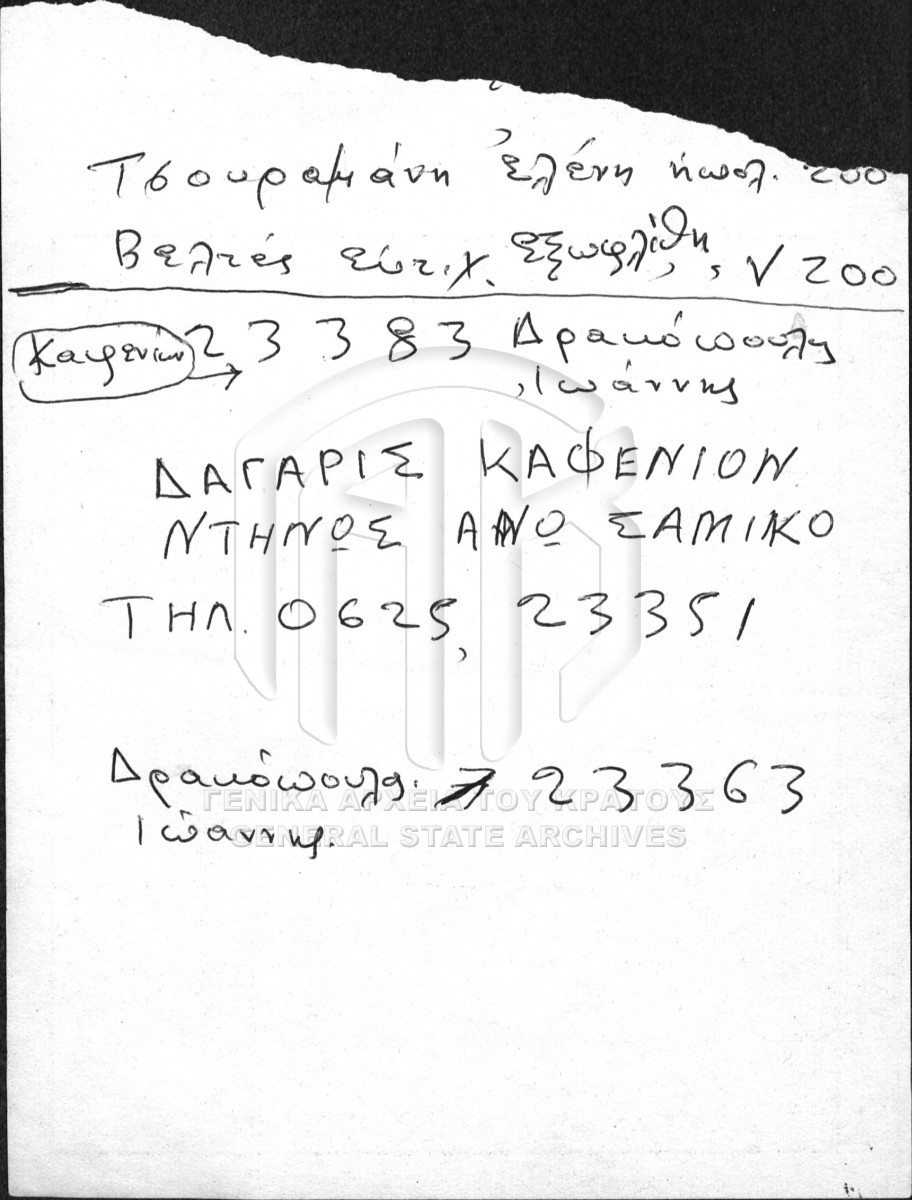 Τσουραμάνη Ἑλένη ὑπολ. 200
Βελτές εὐτ.χ. ἐξωφλήθη √ 200
Καφενίων → 23383 Δρακόπουλς
Ἰωάννης
ΔΑΓΑΡΙΣ ΚΑΦΕΝΙΟΝ
ΝΤΗΝΩΣ ΑΝΩ ΣΑΜΙΚΟ
ΤΗΛ. 0625, 23351
Δρακόπουλς. → 23363
Ιωάννης.
ΓΕΝΙΚΑ ΑΡΧΕΙΑ ΤΟΥ ΚΡΑΤΟΥΣ
GENERAL STATE ARCHIVES